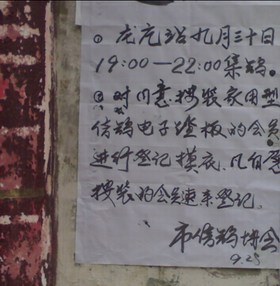 ⊙ 龙亢站九月三十日
19:00—22:00集鸽。
⊙ 对同意按装家用型
信鸽电子踏板的会员
进行登记摸底,凡自愿
按装的会员速来登记。
市信鸽协会
9.28